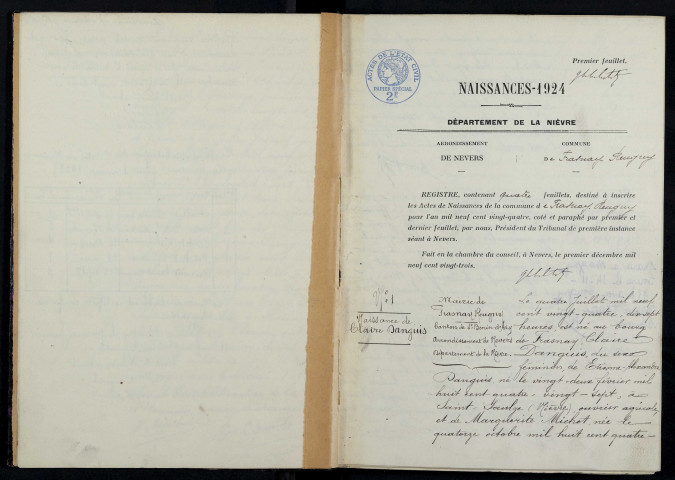 Premier feuillet,
ACTES DE L'ETAT CIVIL
PAPIER SPÉCIAL
2f
NAISSANCES-1924
DÉPARTEMENT DE LA NIÈVRE
ARRONDISSEMENT
DE NEVERS
COMMUNE
DE Frasnay Reugny
REGISTRE, contenant quatre feuillets, destiné à inscrire
les Actes de Naissances de la commune de Frasnay Reugny
pour l'an mil neuf cent vingt-quatre, coté et paraphé par premier et
dernier feuillet, par nous, Président du Tribunal de première instance
séant à Nevers.
Fait en la chambre du conseil, à Nevers, le premier décembre mil
neuf cent vingt-trois.
N° 1
Naissance de
Claire Danguis
Mairie de
Frasnay Reugny
Canton de St Benin d'Azy
Arrondissement de Nevers
Département de la Nièvre
Le quatre Juillet mil neuf
cent vingt-quatre, dix sept
heures est né au bourg
de Frasnay Claire
Danguis, du sexe
féminin, de Etienne
Danguis, né le vingt-deux février mil
huit cent quatre-vingt-sept, à
Saint (Nièvre) ouvrier agricole
et de Marguerite Michot née le
quatorze octobre mil huit cent quatre-